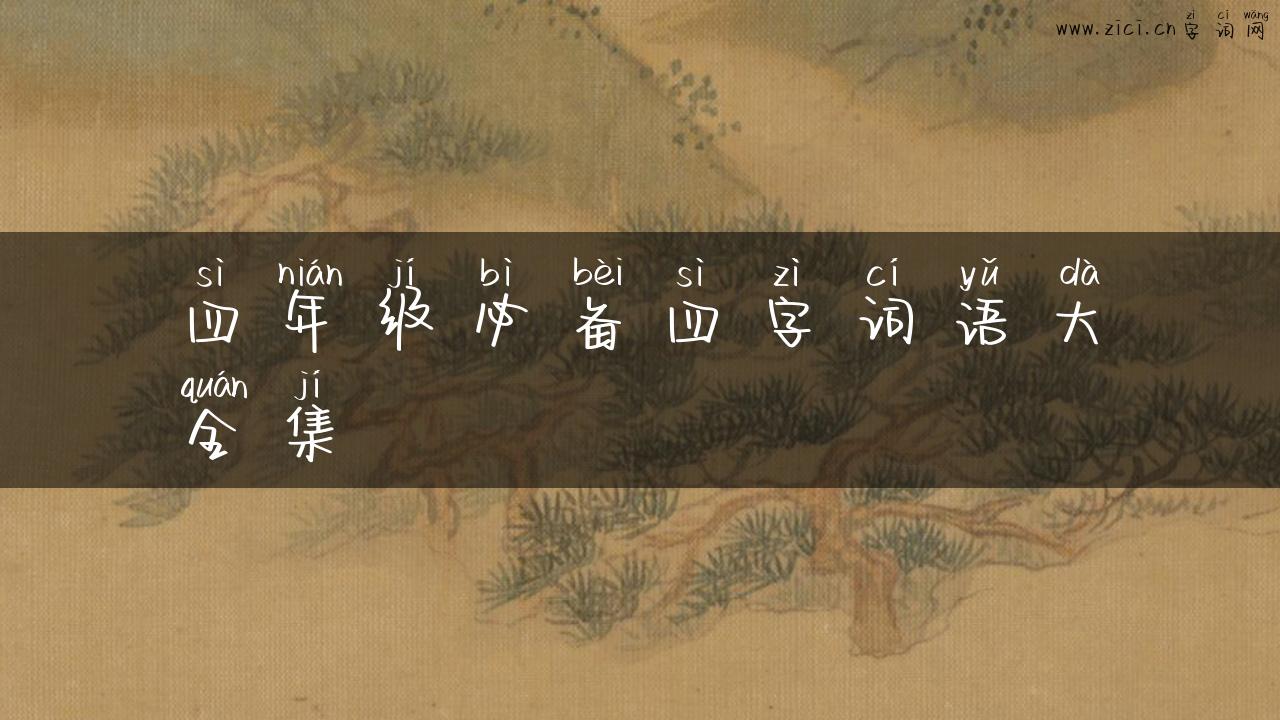 zì cí wǎng
www.zici.cn 字词网
sì nián jí bì bèi sì zì cí yǔ dà
四年级必备四字词语大
quán jí
全集